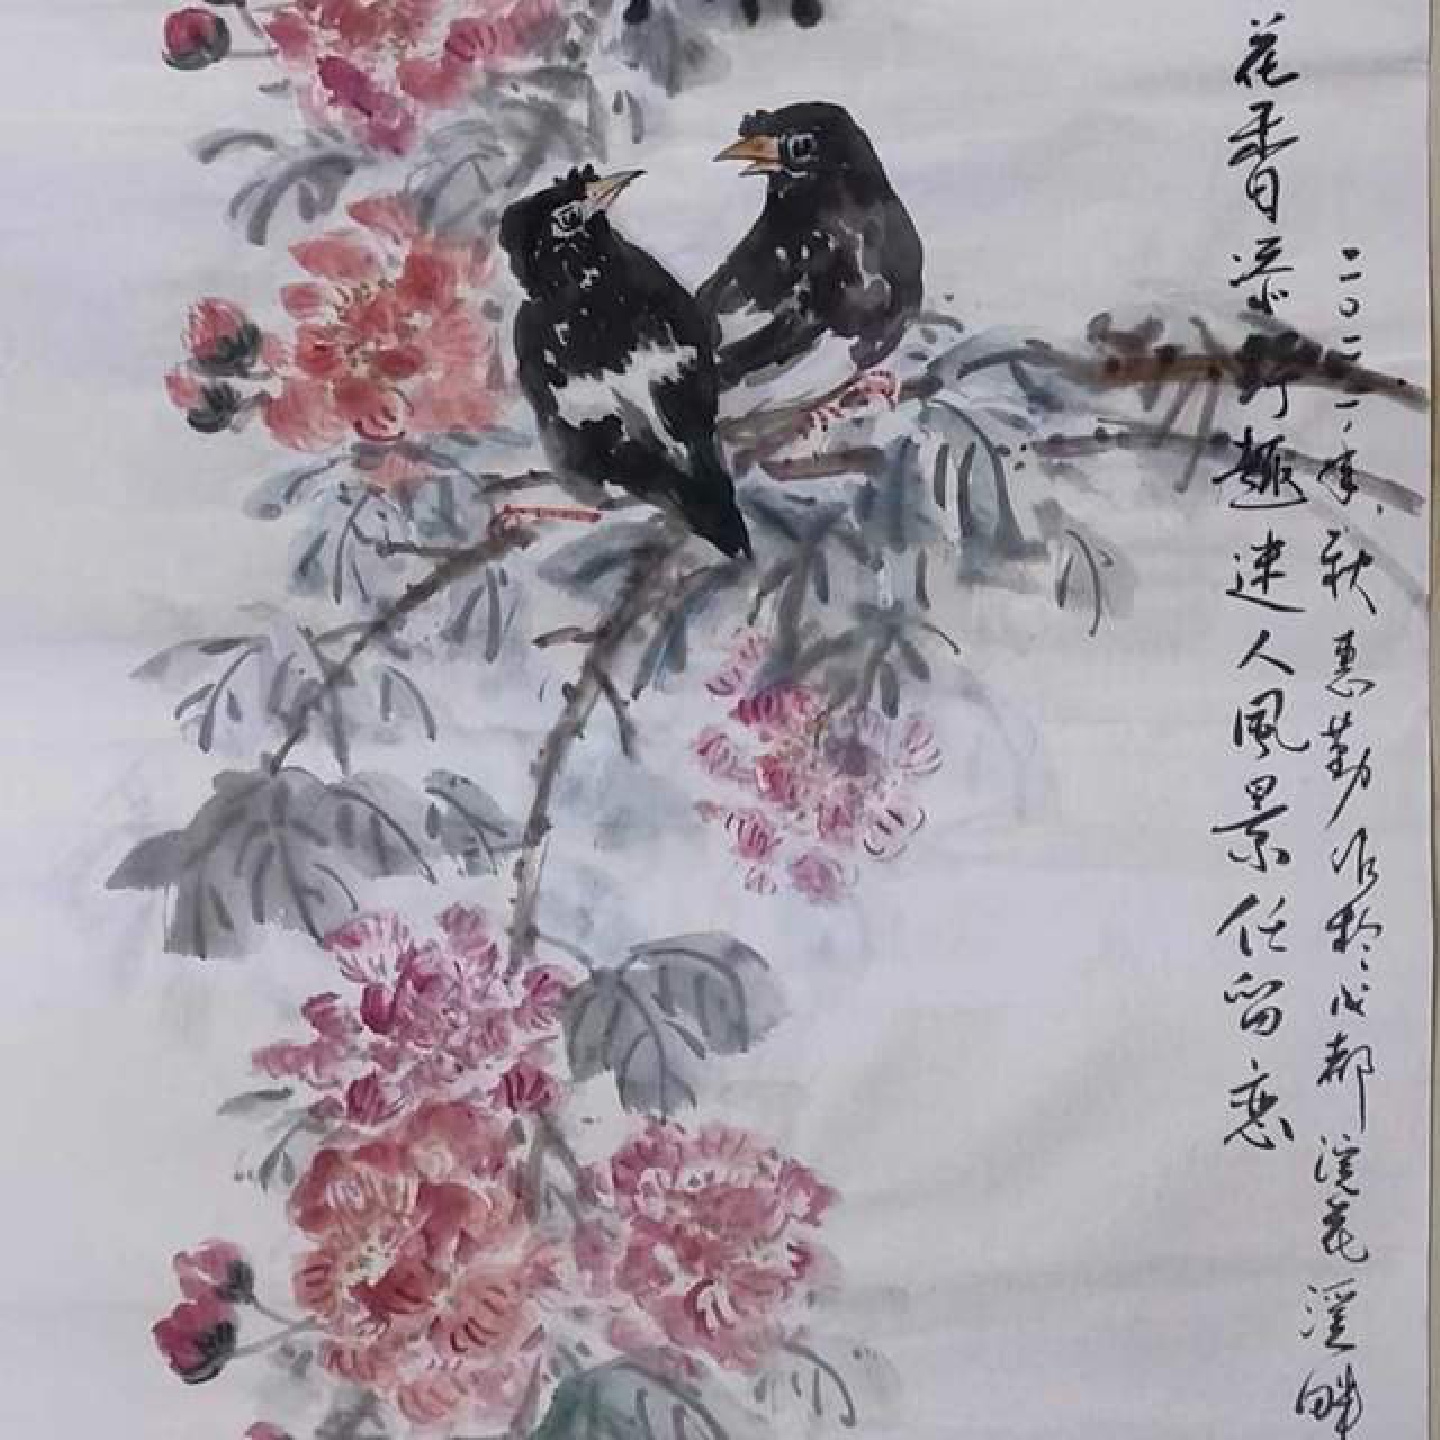 花香添趣迷人風景任留恋
二〇二一年秋惠勤作於成都浣花溪畔